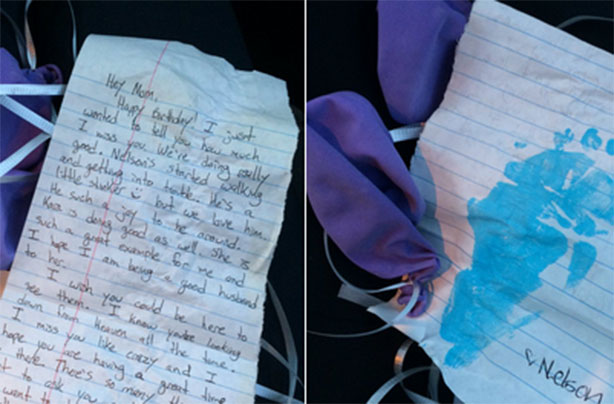 Hey Mom,
Happy Birthday! I just
wanted to tell you how much
I miss you. We're doing really
good. Nelson's started walking
and getting into trouble. He's a
little stinker but we love him.
He such a joy to be around.
is doing good as well. She is
such a great example for me and
I hope I am being a good husband
to her.
I wish you could be here to
see them. I know you're looking
down from Heaven all the time.
I miss you like crazy and I
hope you are having a great time
there. There's so many
to ask you
want to
♡Nelson